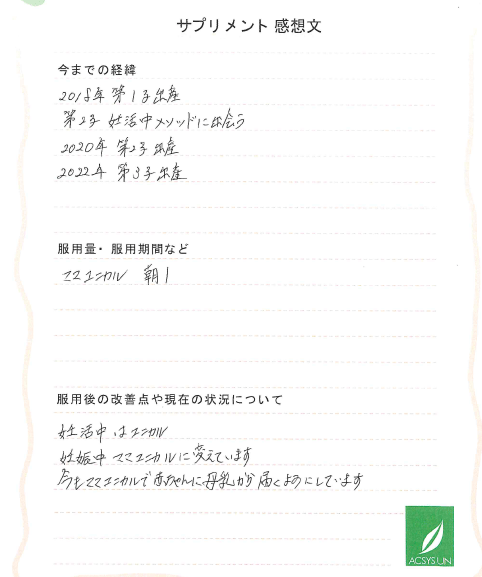 サプリメント 感想文
今までの経緯
2018年 第1子出産
第2子 妊活中メソッドに出会う
2020年 第2子 出産
2022年 第3子出産
服用量・服用期間など
ママユニカル 朝1
服用後の改善点や現在の状況について
妊活中はユニカル
妊娠中 ママユニカルに変えています
今もママユニカルで赤ちゃんに母乳が届くようにしています
ACSYSUN